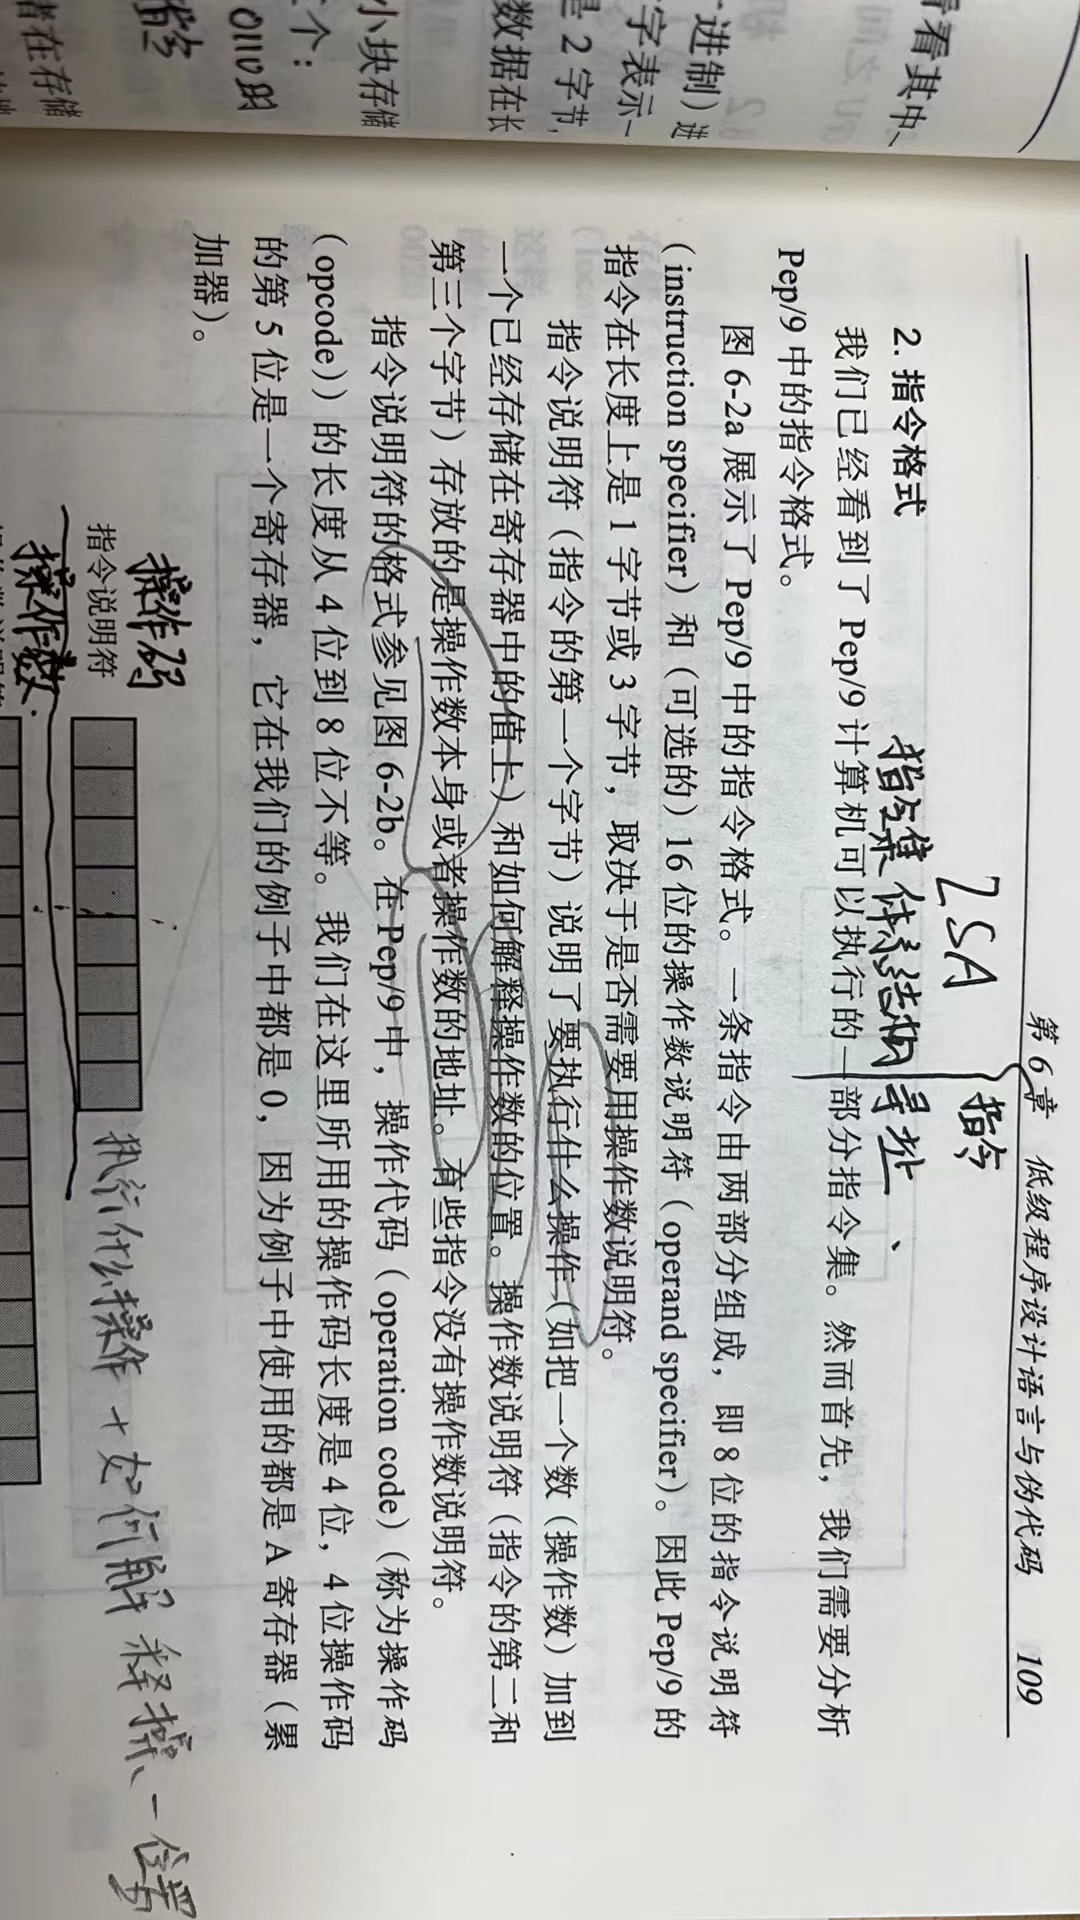 看看其中一
进制）进
字表示一
是 2 字节，
数据在长
小块存储
个：
者在存储
第 6 章 低级程序设计语言与伪代码 109
ISA
指令
指令集体系结构
寻址、
2. 指令格式
我们已经看到了 Pep/9 计算机可以执行的一部分指令集。然而首先，我们需要分析
Pep/9 中的指令格式。
图 6-2a 展示了 Pep/9 中的指令格式。一条指令由两部分组成，即 8 位的指令说明符
（instruction specifier）和（可选的）16 位的操作数说明符（operand specifier）。因此 Pep/9 的
指令在长度上是 1 字节或 3 字节，取决于是否需要用操作数说明符。
指令说明符（指令的第一个字节）说明了要执行什么操作（如把一个数（操作数）加到
一个已经存储在寄存器中的值上）和如何解释操作数的位置。操作数说明符（指令的第二和
第三个字节）存放的是操作数本身或者操作数的地址。有些指令没有操作数说明符。
指令说明符的格式参见图 6-2b。在 Pep/9 中，操作代码（operation code）（称为操作码
（opcode））的长度从 4 位到 8 位不等。我们在这里所用的操作码长度是 4 位，4 位操作码
的第 5 位是一个寄存器，它在我们的例子中都是 0，因为例子中使用的都是 A 寄存器（累
加器）。
操作码
指令说明符
执行什么操作 + 如何解释操、一位置
操作数.